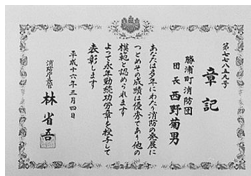 第七八三五号
章記
勝浦町消防団
団長 西野菊男
あなたは多年にわたり消防の発展に
つとめその成績は優秀であり他の
模範と認められます
よつて永年勤続功労章を授与して
表彰します
平成十六年三月四日
消防庁長官
林省吾